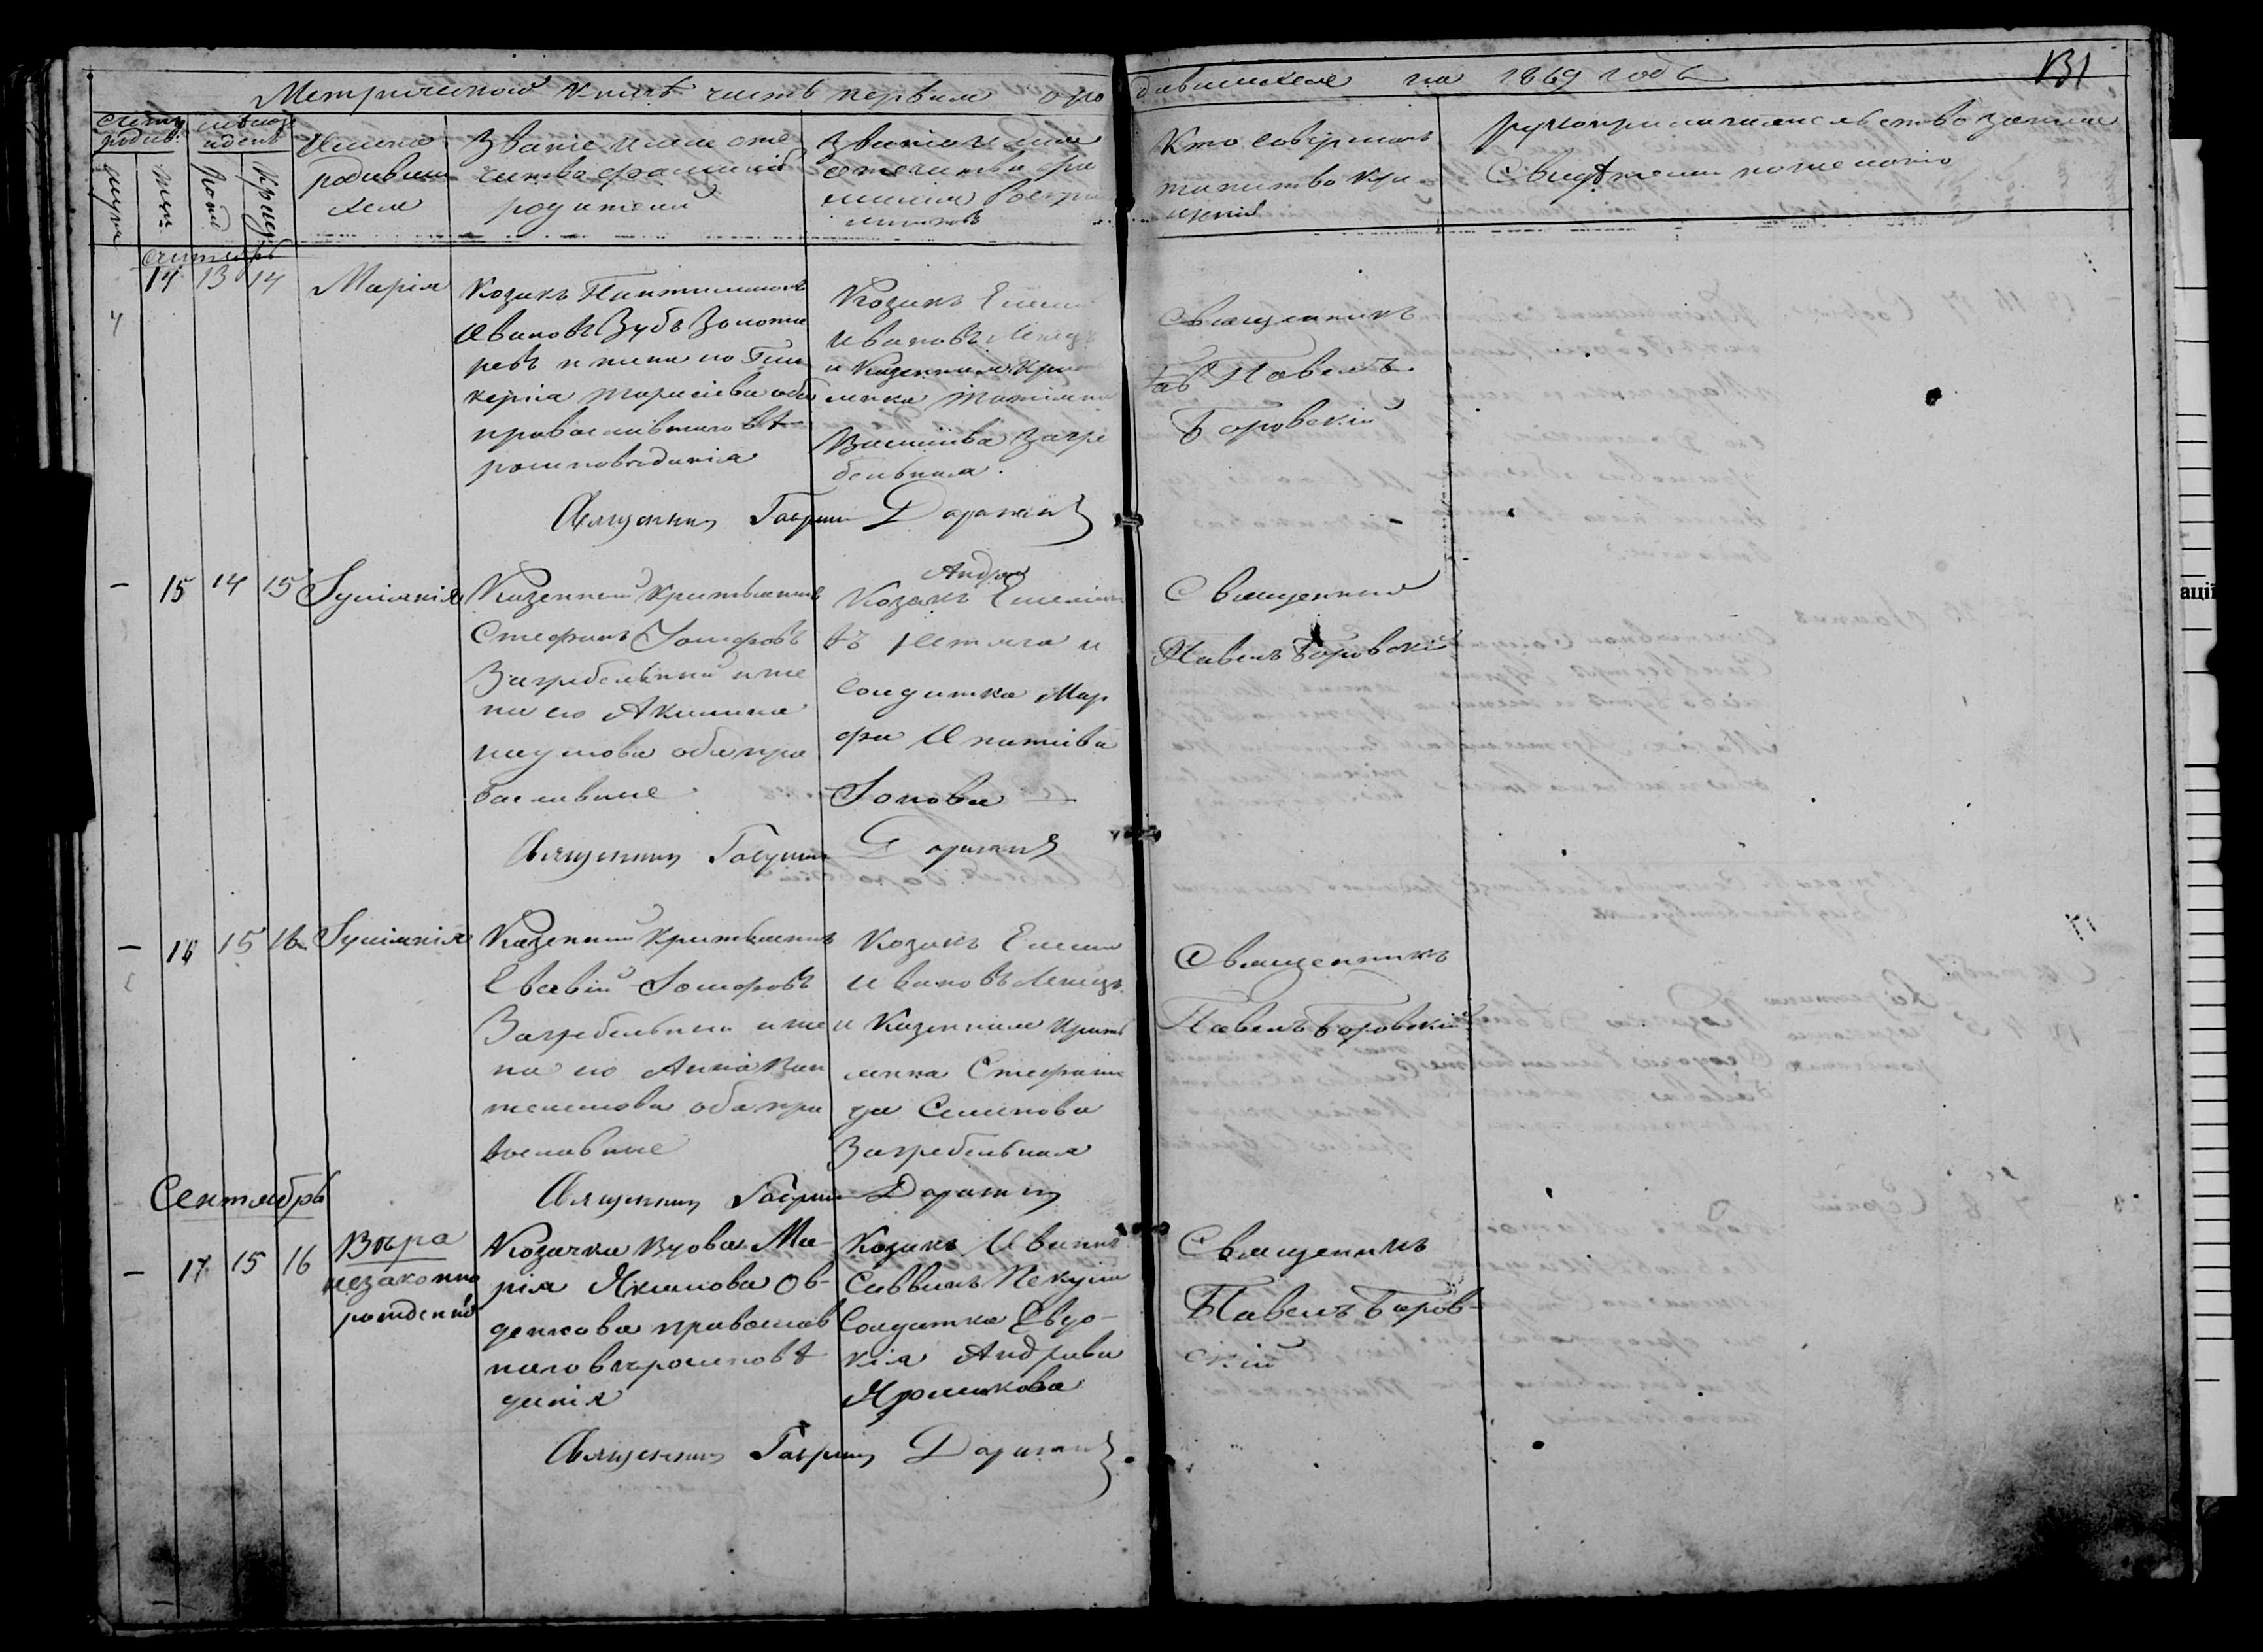 Метрической книги часть первая о ро дившихся на 1869 годъ
131
Счетъ родив.
мѣсяцъ и день
муж.
жен.
рожд.
крещ.
Имена родивши хся
Званіе имя оте чество фамилія родителей
Званіе имя отечество фа милія воспри емниковъ
Кто совершалъ таинство кре щенія
рукоприкладательство
Свидѣтелей по желанію
Сентябрь
14 13 14
Марія
Козакъ Пантилимонъ
Ивановъ Зубъ Золота
ревъ и жена его
Тарасіева оба
православнаго вѣ
роисповѣданія
Козакъ Емел
Ивановъ
и Казенная Крест
янка Татіяна
Васильева Загре
бельная.
Священникъ
Павелъ
Боровскій
Священникъ Гавріилъ
– 15 14 15
Іуліанія
Казенный Крестьянинъ
Стефанъ Іосифовъ
Загребельный и же
на его Акилина
Наумова оба пра
вославные
Андрей
Козакъ Емеліан
въ и
Солдатка Мар
фа Игнатіева
Іонова –
Священникъ
Павелъ Боровскій
Священникъ Гавріилъ
– 16 15 16
Іуліанія
Казенный Крестьянинъ
Евсевій Іосифовъ
Загребельный и же
на его Анна Пан
телимова оба пра
вославные
Козакъ Емел
Ивановъ
и Казенная Крест
янка Стефани
да Семенова
Загребельная
Священникъ
Павелъ Боровскій
Священникъ Гавріилъ
Сентябрь
– 17 15 16
Вѣра
незаконно
рожденна
Козачка Вдова Ма-
рія Якимова Ов-
денкова православ
наго вѣроисповѣ
данія
Козакъ Иванъ
Саввинъ
Солдатка Евдо-
кія Андреева
Ярошкова
Священникъ
Павелъ Боров-
скій
Священникъ Гавріилъ